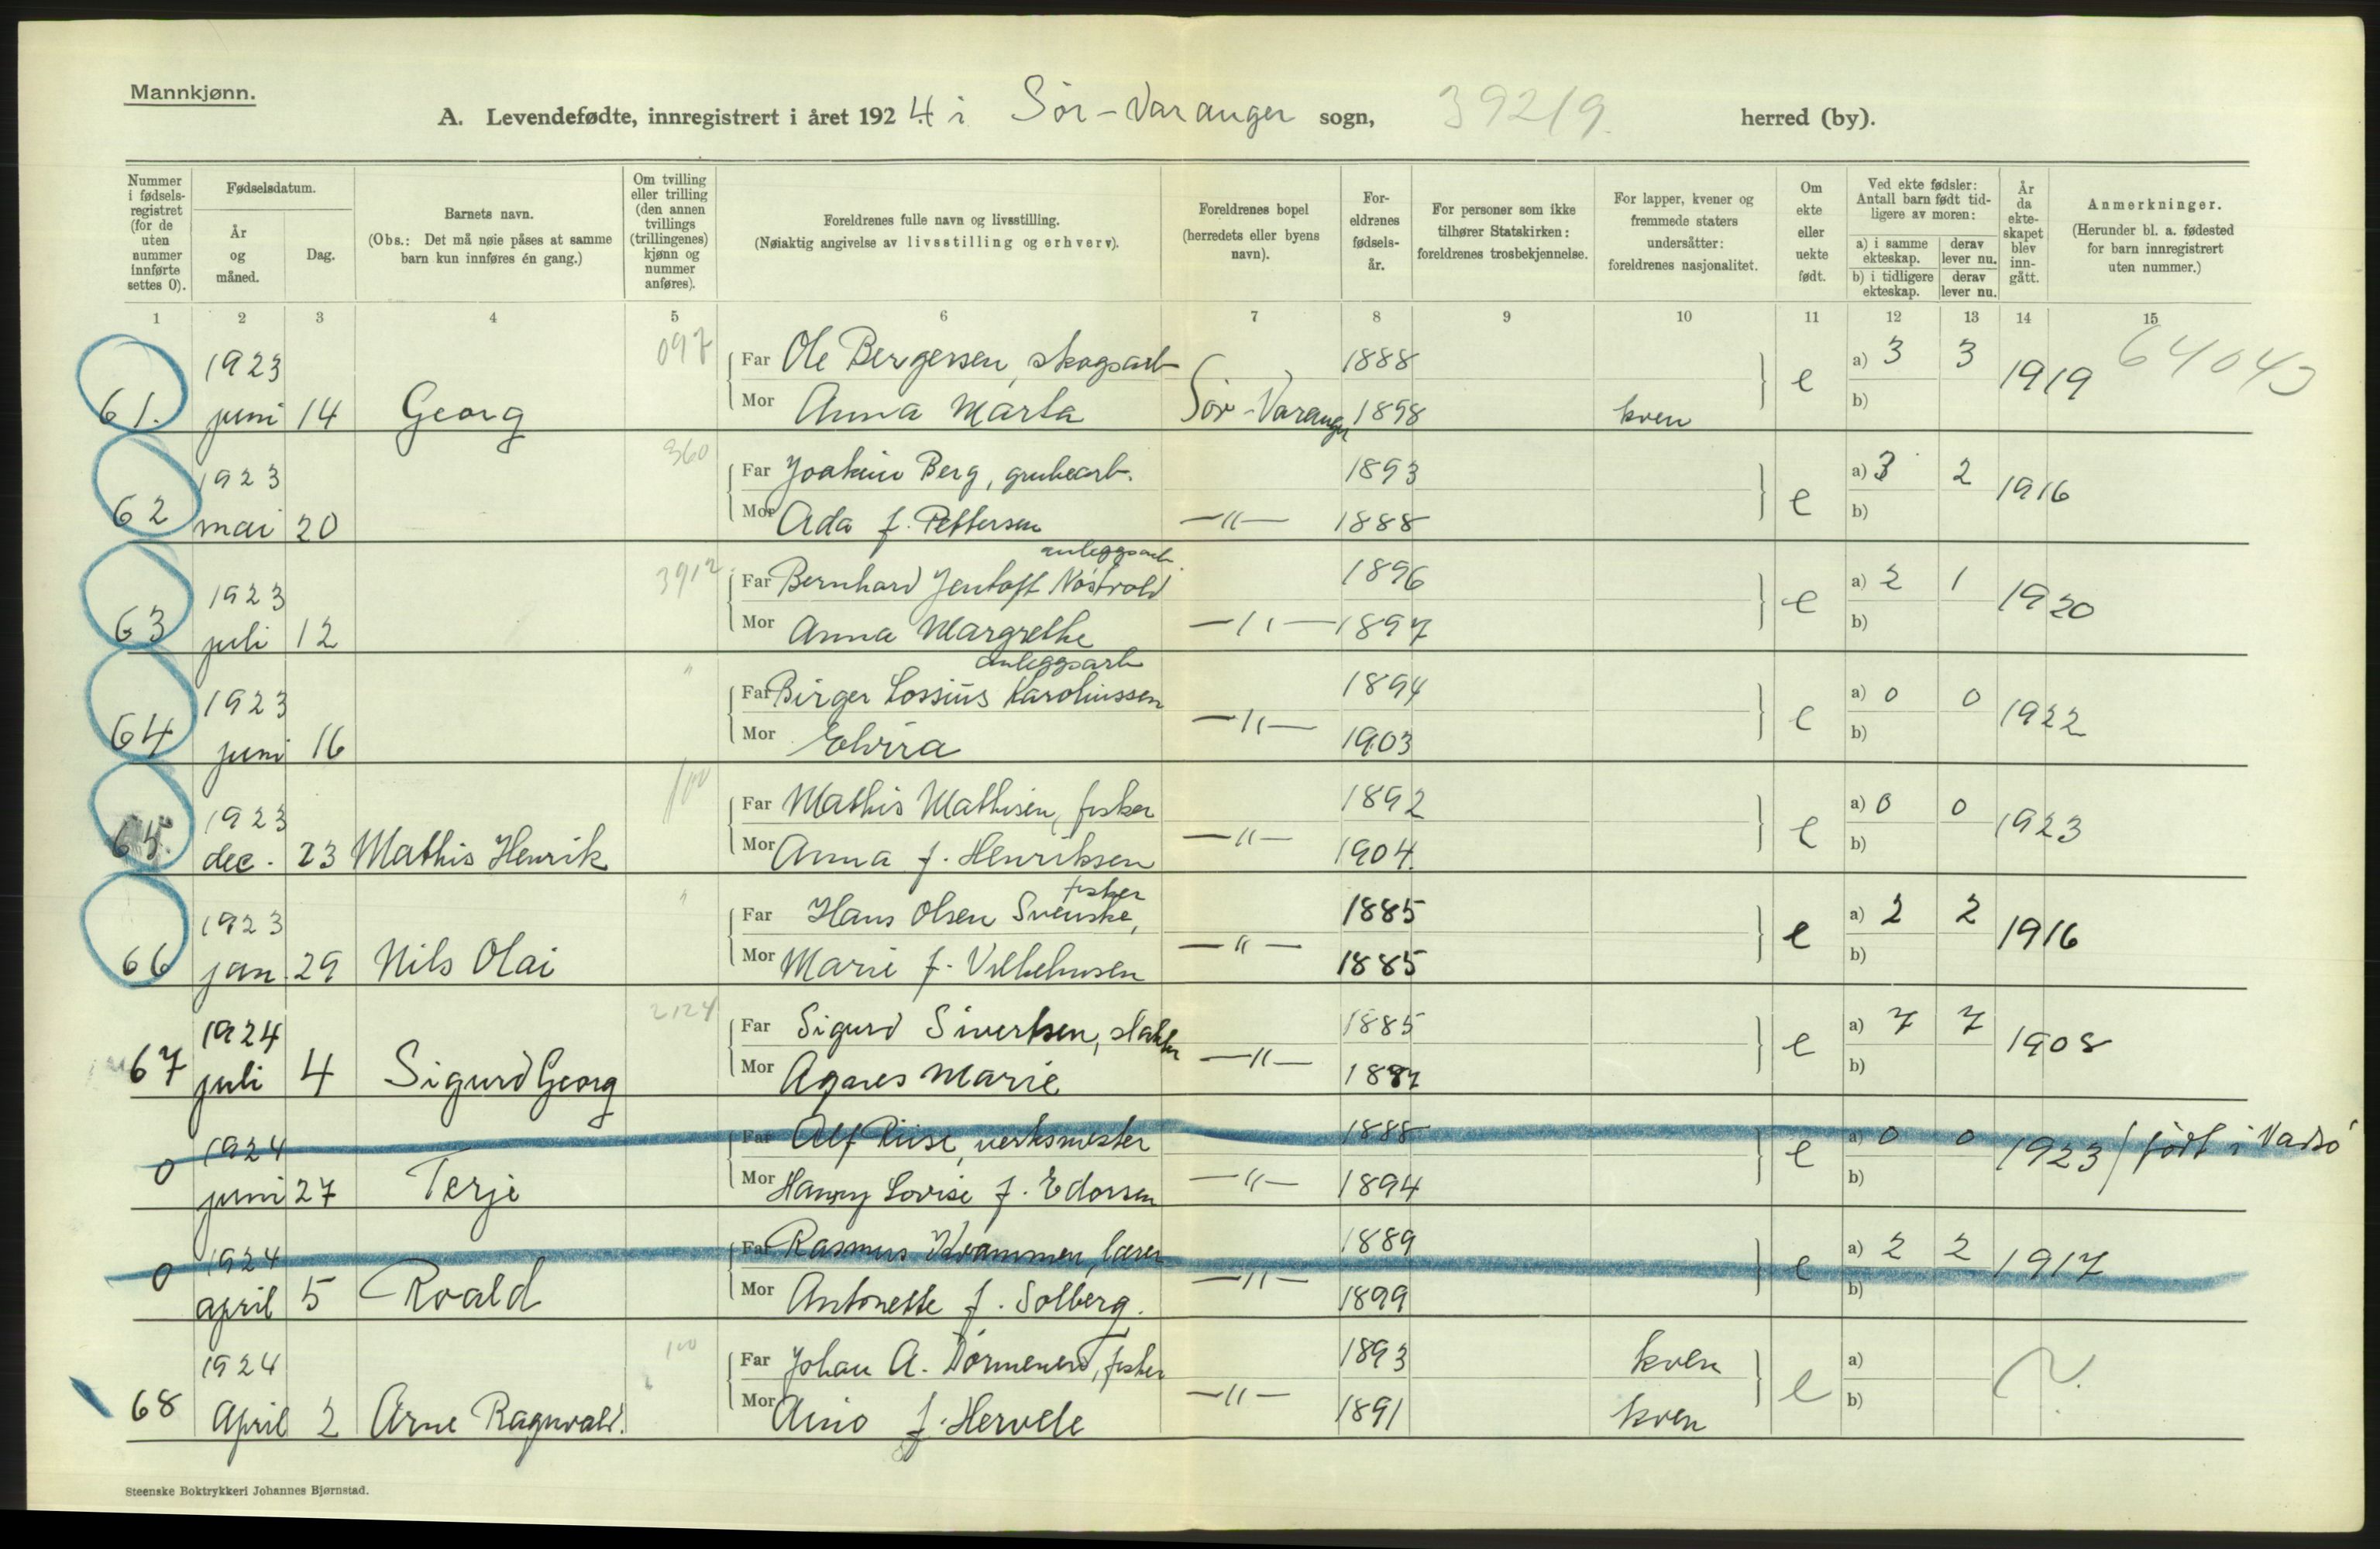 Mannkjønn.
A. Levendefødte, innregistrert i året 1924 i Sör-Varanger sogn, 39219. herred (by).
Nummer i fødselsregistret (for de uten nummer innførte settes 0).
Fødselsdatum.
År og måned.
Dag.
Barnets navn.
(Obs.: Det må nøie påses at samme barn kun innføres én gang.)
Om tvilling eller trilling (den annen tvillings (trillingenes) kjønn og nummer anføres).
Foreldrenes fulle navn og livsstilling.
(Nøiaktig angivelse av livsstilling og erhverv).
Foreldrenes bopel (herredets eller byens navn).
Foreldrenes fødselsår.
For personer som ikke tilhører Statskirken: foreldrenes trosbekjennelse.
For lapper, kvener og fremmede staters undersåtter: foreldrenes nasjonalitet.
Om ekte eller uekte født.
Ved ekte fødsler: Antall barn født tidligere av moren:
a) i samme ekteskap.
derav lever nu.
b) i tidligere ekteskap.
derav lever nu.
År da ekteskapet blev inngått.
Anmerkninger.
(Herunder bl. a. fødested for barn innregistrert uten nummer.)
1 2 3 4 5 6 7 8 9 10 11 12 13 14 15
61. 1923 juni 14 Georg 097
Far Ole Bergersen, skogsarb 1888 e a) 3 3 1919 64043
Mor Anna Marta Sör-Varanger 1898 kven b)
62 1923 mai 20 360
Far Joakim Berg, grubearb. 1893 e a) 3 2 1916
Mor Ada f. Pettersen —"— 1888 b)
63 1923 juli 12 3912
anleggsarb.
Far Bernhard Jentoft Nöstvold 1896 e a) 2 1 1920
Mor Anna Margrethe —"— 1897 b)
64 1923 juni 16 "
anleggsarb
Far Birger Lossius Karoliussen 1894 e a) 0 0 1922
Mor Elvira —"— 1903 b)
65. 1923 dec. 23 Mathis Henrik 100
Far Mathis Mathisen, fisker 1892 e a) 0 0 1923
Mor Anna f. Henriksen —"— 1904. b)
66 1923 jan. 29 Nils Olai "
fisker
Far Hans Olsen Svenske, 1885 e a) 2 2 1916
Mor Marie f. —"— 1885 b)
67 1924 juli 4 Sigurd Georg 2124
Far Sigurd Sivertsen, 1885 e a) 7 7 1908
Mor Agnes Marie —"— 1887 b)
0 1924 juni 27 Terje
Far Alf Riise, verksmester 1888 e a) 0 0 1923 / födt i Vadsö
Mor Hanny Lovise f. —"— 1894 b)
0 1924 april 5 Roald
Far Rasmus Kvammen, lærer 1889 e a) 2 2 1917
Mor Antonette f. Solberg. —"— 1899 b)
68 1924 April 2 Arne Ragnvald. 100
Far Johan A. fisker 1893 kven e a) ?
Mor Aino f. —"— 1891 kven b)
Steenske Boktrykkeri Johannes Bjørnstad.